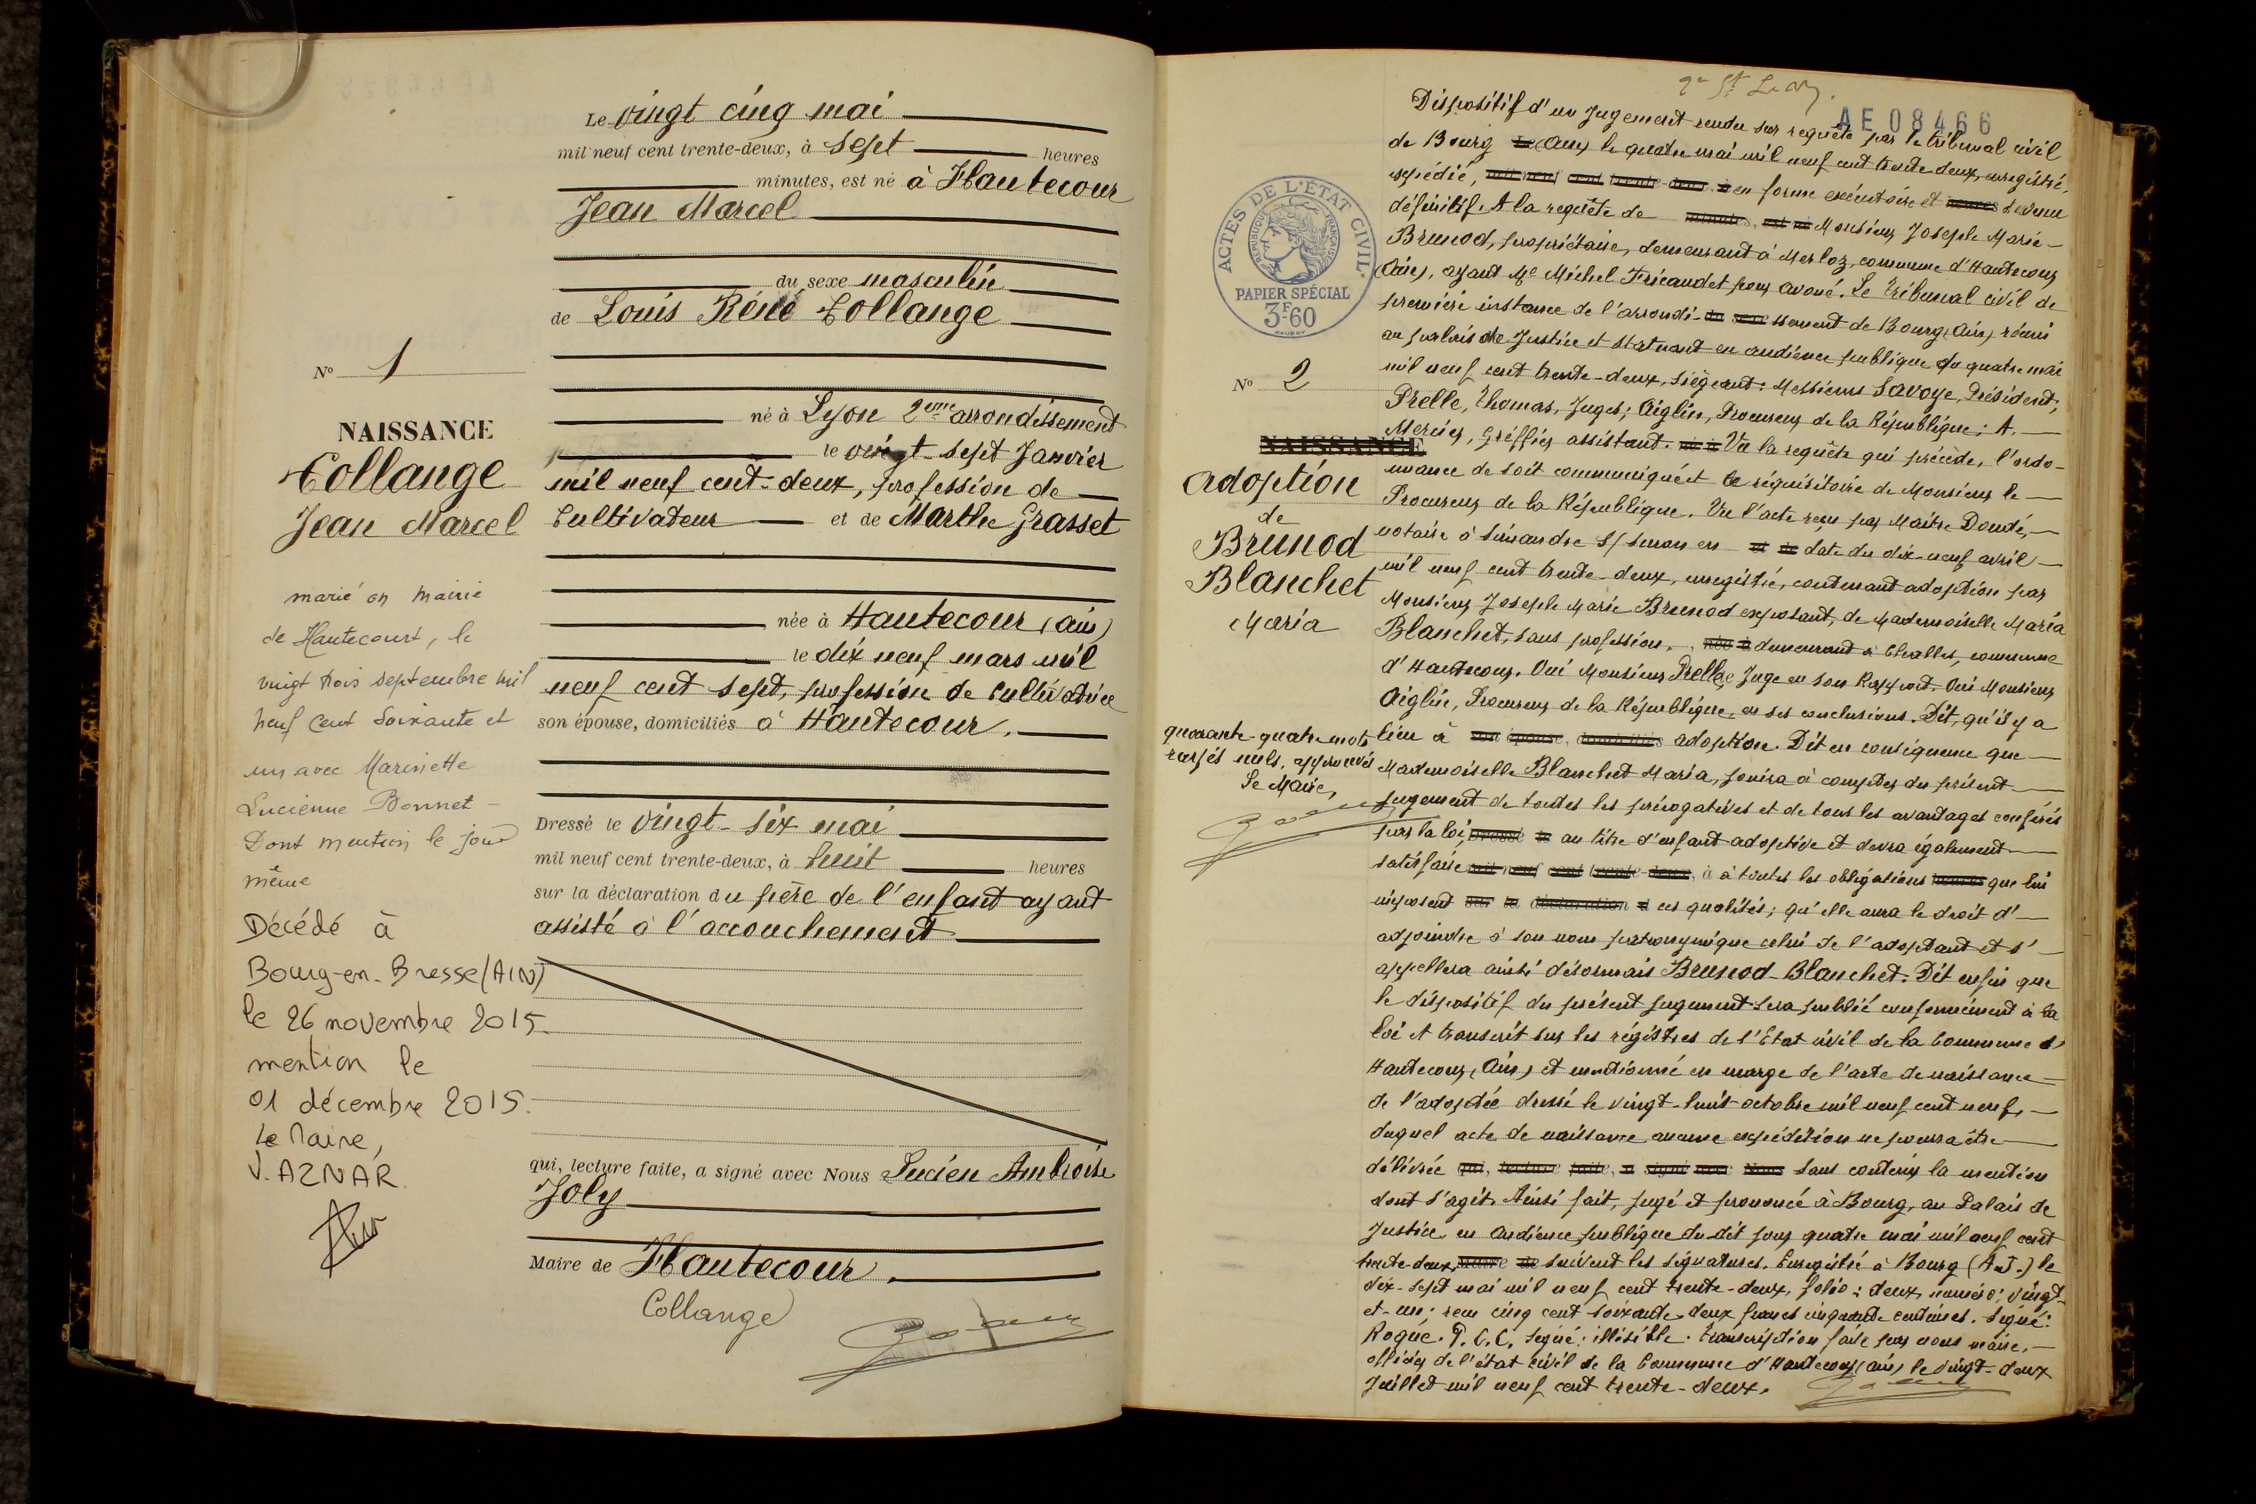 Le vingt cinq mai
mil neuf cent trente-deux, à sept heures
minutes, est né à Hautecour
Jean Marcel
du sexe masculin
de Louis Réné Collange
né à Lyon 2eme arrondissement
le vingt-sept Janvier
mil neuf cent-deux, profession de
Cultivateur et de Marthe Grasset
née à Hautecour (Ain)
le dix neuf mars mil
neuf cent sept, profession de Cultivatrice
son épouse, domiciliés à Hautecour.
Dressé le vingt-six mai
mil neuf cent trente-deux, à huit heures
sur la déclaration du père de l'enfant ayant
assisté à l'accouchement
qui, lecture faite, a signé avec Nous Lucien Ambroise
Joly
Maire de Hautecour.
Collange
No 1
NAISSANCE
Collange
Jean Marcel
marié en mairie
de Hautecourt, le
vingt trois septembre mil
neuf cent soixante et
un avec Marinette
Lucienne Bonnet -
Dont mention le jour
même
Décédé à
Bourg-en-Bresse (AIN)
le 26 novembre 2015.
mention le
01 décembre 2015.
Le Maire,
V. AZNAR.
AE 08466
ACTES DE L'ÉTAT CIVIL
RÉPUBLIQUE FRANÇAISE
PAPIER SPÉCIAL
3F60
No 2
NAISSANCE
Adoption
de
Brunod
Blanchet
Maria
quarante-quatre mots
rayés nuls, approuvés
Le Maire,
Dispositif d'un Jugement rendu sur requête par le tribunal civil
de Bourg (Ain) le quatre mai mil neuf cent trente deux, enregistré,
expédié, mil neuf cent trente-deux, à en forme exécutoire et heures devenu
définitif. A la requête de minutes, est né Monsieur Joseph Marie
Brunod, propriétaire, demeurant à Merloz, commune d'Hautecour
(Ain), ayant Me Michel Fricaudet pour avoué. Le Tribunal civil de
première instance de l'arrondi- du sexe ssement de Bourg (Ain) réuni
au palais de Justice et statuant en audience publique du quatre mai
mil neuf cent trente-deux, siègeant: Messieurs Savoye, Président;
Prelle, Thomas, Juges; Aiglin, Procureur de la République; A.
Mercier, Greffier assistant. né à Vu la requête qui précède, l'ordo-
nnance de soit communiqué et le réquisitoire de Monsieur le
Procureur de la République. Vu l'acte reçu par Maître Doudé,
notaire à Simandre s/ Suran en et de date du dix-neuf avril
mil neuf cent trente-deux, enregistré, contenant adoption par
Monsieur Joseph Marie Brunod exposant, de Mademoiselle Maria
Blanchet, sans profession, née à demeurant à Challes, commune
d'Hautecour. Oui Monsieur Prelle, Juge en son Rapport. Oui Monsieur
Aiglin, Procureur de la République, en ses conclusions. Dit, qu'il y a
lieu à son épouse, domiciliés adoption. Dit en conséquence que
Mademoiselle Blanchet Maria, jouira à compter du présent
jugement de toutes les prérogatives et de tous les avantages conférés
par la loi, Dressé le au titre d'enfant adoptive et devra également
satisfaire mil neuf cent trente-deux, à à toutes les obligations heures que lui
imposent sur la déclaration d ces qualités; qu'elle aura le droit d'
adjoindre à son nom patronymique celui de l'adoptant et s'
appellera ainsi désormais Brunod-Blanchet. Dit enfin que
le dispositif du présent jugement sera publié conformément à la
loi et transcrit sur les régistres de l'Etat civil de la Commune d'
Hautecour (Ain) et mentionné en marge de l'acte de naissance
de l'adoptée dressé le vingt-huit octobre mil neuf cent neuf,
duquel acte de naissance aucune expédition ne pourra être
délivrée qui, lecture faite, a signé avec Nous sans contenir la mention
dont s'agit. Ainsi fait, jugé et prononcé à Bourg, au Palais de
Justice en audience publique du dit jour quatre mai mil neuf cent
trente-deux, Maire de suivent les signatures. Enregistré à Bourg (A.J.) le
dix-sept mai mil neuf cent trente-deux, folio: deux, numéro: vingt-
et-un; reçu cinq cent soixante-deux francs cinquante centimes. Signé:
Rogué. P.C.C. signé: illisible. Transcription faite par nous maire,
officier de l'état civil de la Commune d'Hautecour (Ain) le vingt-deux
Juillet mil neuf cent trente-deux.